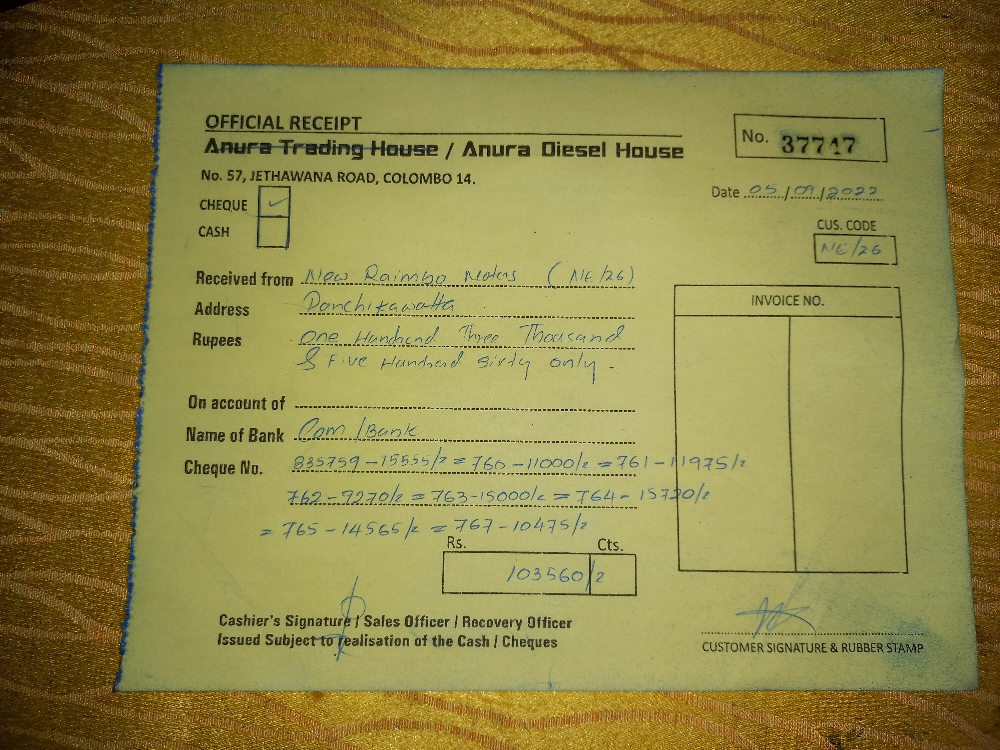 OFFICIAL RECEIPT
Anura Trading House / Anura Diesel House
No. 37747
No. 57, JETHAWANA ROAD, COLOMBO 14.
Date 05/09/2022
CHEQUE ✓
CASH
CUS. CODE
NE/26
Received from New Raimbo Motors (NE/26)
Address Panchikawatta
Rupees One Hundred Three Thousand
& Five Hundred Sixty only.
INVOICE NO.
On account of
Name of Bank Com/Bank
Cheque No. 835759-15555/= = 760-11000/= = 761-11975/=
762-9270/= = 763-15000/= = 764-15720/=
= 765-14565/= = 767-10475/=
Rs. Cts.
103560/=
Cashier's Signature / Sales Officer / Recovery Officer
Issued Subject to realisation of the Cash / Cheques
CUSTOMER SIGNATURE & RUBBER STAMP